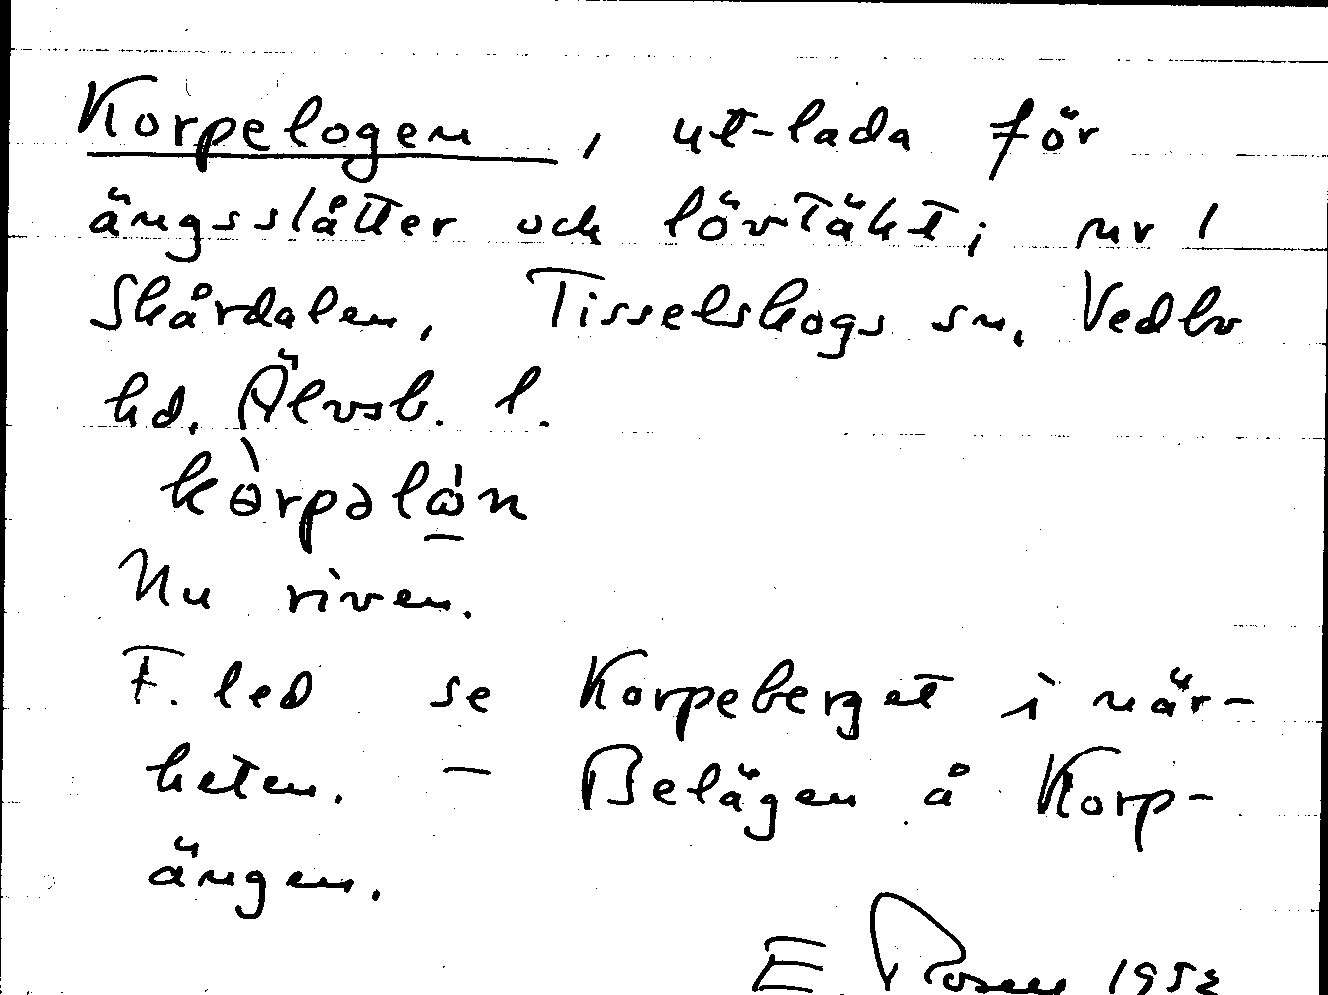 Korpelogen, ut-lada för
ängsslåtter och lövtäkt; nr 1
Skårdalen, Tisselskogs sn. Vedbo
hd. Älvsb. l.
kòrpəlω̇n
Nu riven.
F. led se Korpeberget i när-
heten. – Belägen å Korp-
ängen.
E Rosen 1952